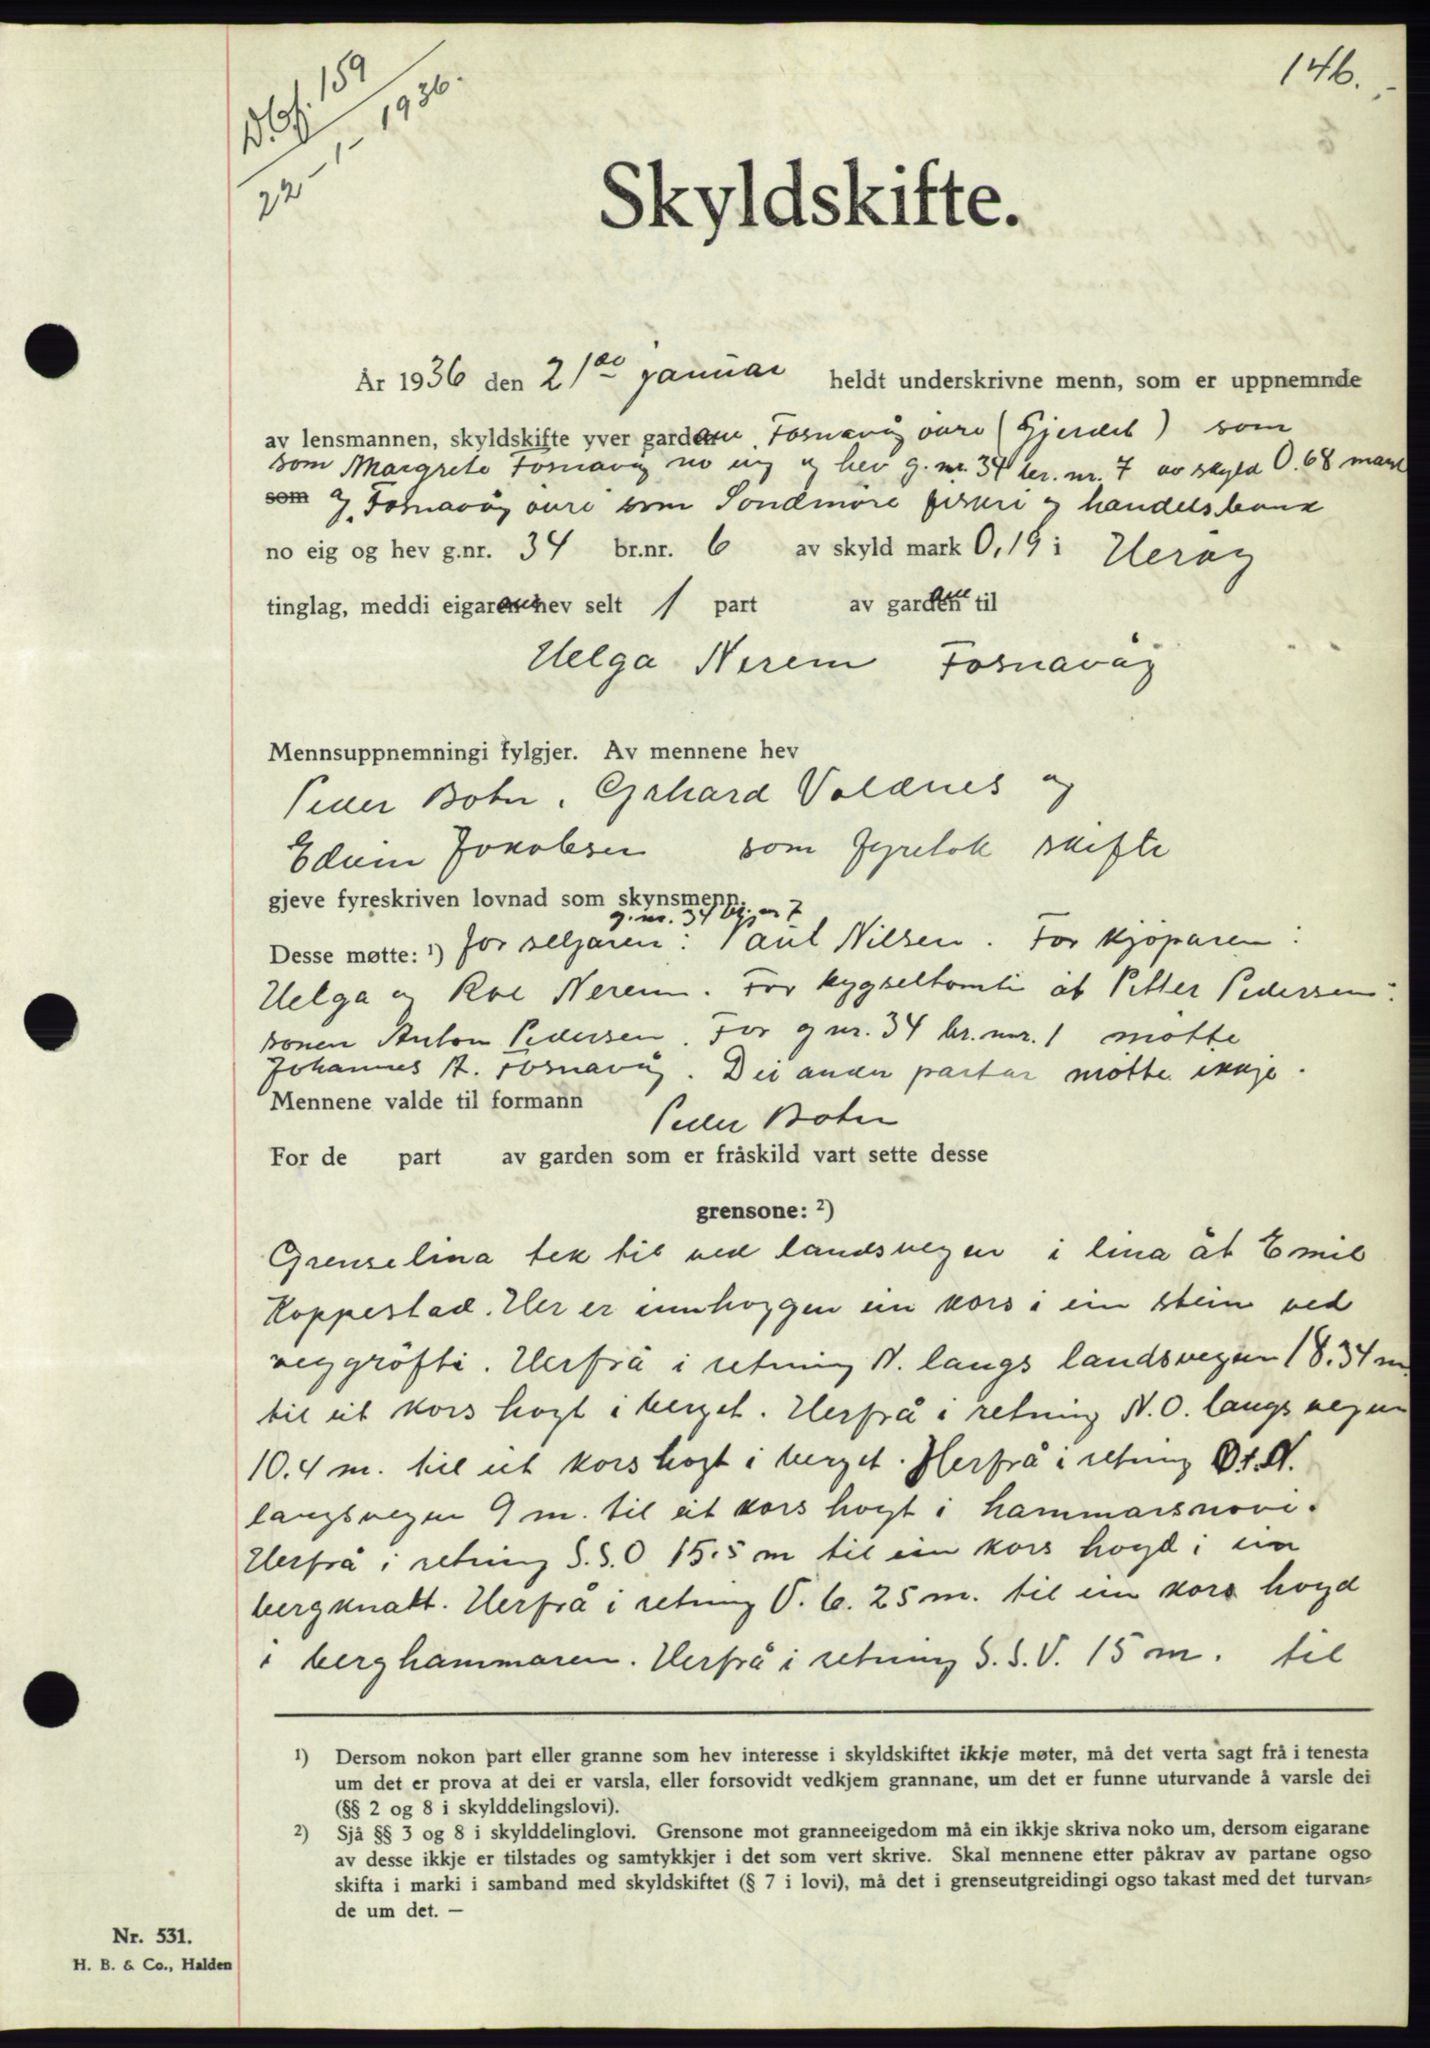 146.
Dbf. 159
22-1-1936.
Skyldskifte.
År 1936 den 21de januar heldt underskrivne menn, som er uppnemnde
av lensmannen, skyldskifte yver gardane Fosnavåg øvre (Gjerdet) som
som Margrete Fosnavåg no eig og hev g.nr. 34 br.nr. 7 av skyld 0.68 mark
som og Fosnavåg øvre som Søndmøre fiskeri og handelsbank
no eig og hev g.nr. 34 br.nr. 6 av skyld mark 0,19 i Herøy
tinglag, meddi eigarane hev selt 1 part av gardane til
Helga Nerem Fosnavåg
Mennsuppnemningi fylgjer. Av mennene hev
Peder Botn, Gerhard Voldnes og
Edvin Jakobsen som fyretok skifte
gjeve fyreskriven lovnad som skynsmenn.
g.nr. 34 br. nr 7
Desse møtte: ¹) for seljaren: Paul Nilsen. For kjøparen:
Helga og Roe Nerem. For bygseltomti åt Petter Pedersen:
sonen Anton Pedersen. For g nr. 34 br.nr. 1 møtte
Johannes A. Fosnavåg. Dei andre partar møtte ikkje.
Mennene valde til formann
Peder Botn
For de part av garden som er fråskild vart sette desse
grensone: ²)
Grenselina tek til ved landsvegen i lina åt Emil
Koppestad. Her er innhoggen ein kors i ein stein ved
veggrøfti. Herfrå i retning N. langs landsvegen 18.34 m.
til eit kors hogt i berget. Herfrå i retning N.O. langs vegen
10.4 m. til eit kors hogt i berget. Herfrå i retning O.t.N.
langs vegen 9 m. til eit kors hogt i hammarsnovi.
Herfrå i retning S.S.O 15.5 m til ein kors hogd i ein
bergknatt. Herfrå i retning V. 6.25 m. til ein kors hogd
i berghammaren. Herfrå i retning S.S.V. 15 m. til
¹) Dersom nokon part eller granne som hev interesse i skyldskiftet ikkje møter, må det verta sagt frå i tenesta
um det er prova at dei er varsla, eller forsovidt vedkjem grannane, um det er funne uturvande å varsle dei
(§§ 2 og 8 i skylddelingslovi).
²) Sjå §§ 3 og 8 i skylddelinglovi. Grensone mot granneeigedom må ein ikkje skriva noko um, dersom eigarane
av desse ikkje er tilstades og samtykkjer i det som vert skrive. Skal mennene etter påkrav av partane ogso
skifta i marki i samband med skyldskiftet (§ 7 i lovi), må det i grenseutgreidingi ogso takast med det turvan-
de um det. —
Nr. 531.
H. B. & Co., Halden